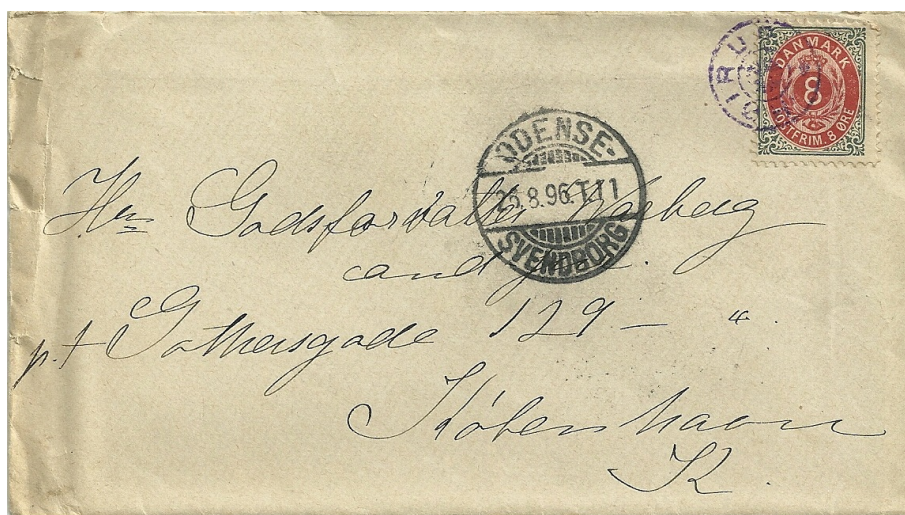 DANMARK
8
POSTFRIM. 8 ØRE
ODENSE-
25.8.96.T.T1
SVENDBORG
Hr. Godsforvalter Warberg
cand. jur.
p.t Gothersgade 129 - "
København
K.